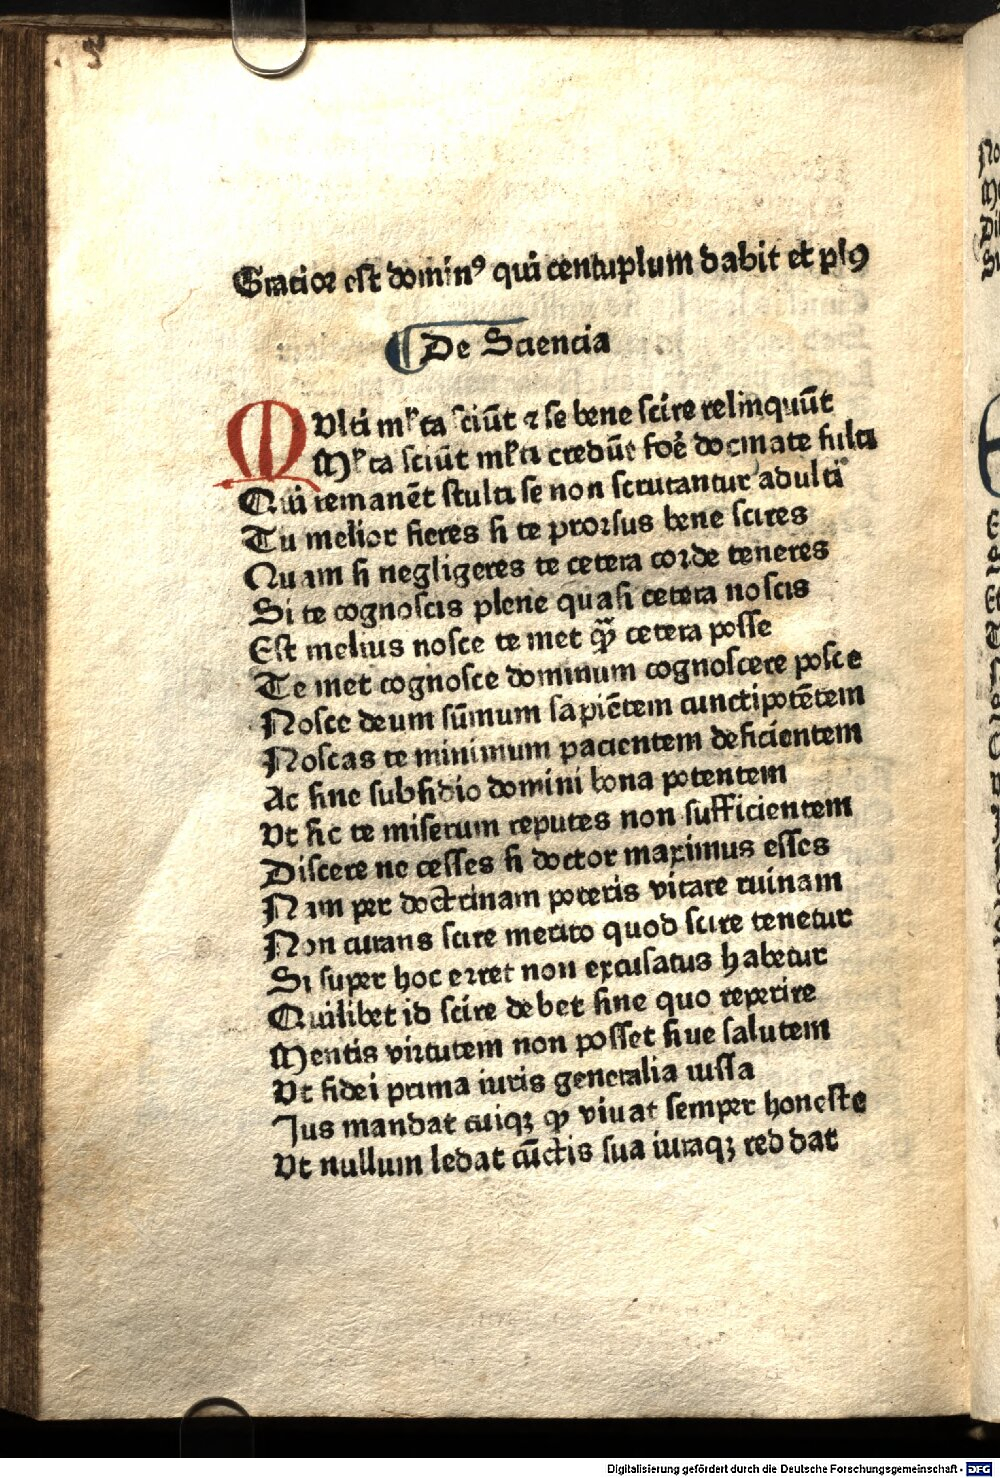 Gracior est domin⁹ qui centuplum dabit et pl⁹
De Sciencia
MVlti ml'ta sciūt ⁊ se bene scire relinquūt
Ml'ta sciūt ml'ti credūt forē docmate fulti
Qui remanēt stulti se non scrutantur adulti
Tu melior fieres si te prorsus bene scires
Quam si negligeres te cetera corde teneres
Si te cognoscis plene quasi cetera noscis
Est melius nosce te met qᷓꝫ cetera posse
Te met cognosce dominum cognoscere posce
Nosce deum sūmum sapiētem cunctipotētem
Noscas te minimum pacientem deficientem
Ac sine subsidio domini bona potentem
Vt sic te miserum reputes non sufficientem
Discere ne cesses si doctor maximus esses
Nam per doctrinam poteris vitare ruinam
Non curans scire merito quod scire tenetur
Si super hoc erret non excusatus habetur
Quilibet id scire debet sine quo reperire
Mentis virtutem non posset siue salutem
Vt fidei prima iuris generalia iussa
Jus mandat cuiqꝫ ꝙ viuat semper honeste
Vt nullum ledat cūctis sua iuraqꝫ reddat
Digitalisierung gefördert durch die Deutsche Forschungsgemeinschaft - DFG